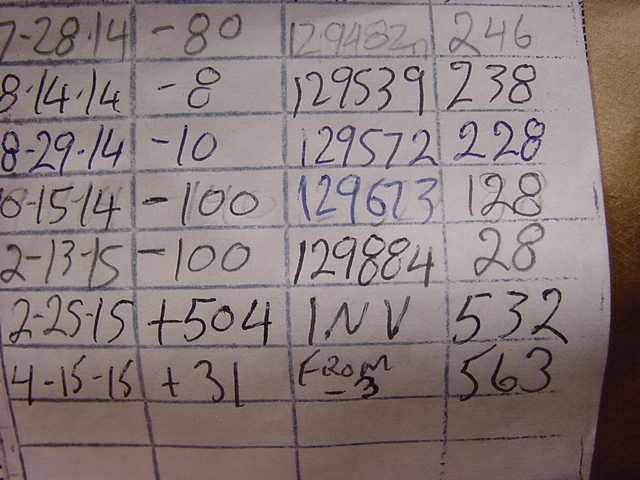 7-28-14 -80 129482 246
8-14-14 -8 129539 238
8-29-14 -10 129572 228
0-15-14 -100 129673 128
2-13-15 -100 129884 28
2-25-15 +504 INV 532
4-15-15 +31 FROM -3 563